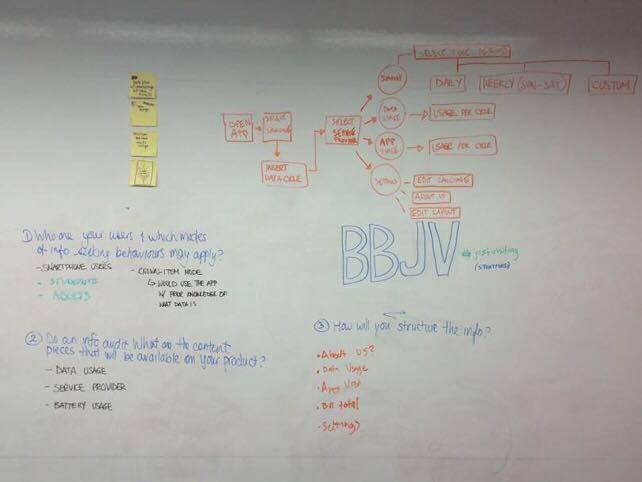 SELECT TIME PERIOD
SUMMARY
DAILY
WEEKLY (SUN-SAT)
CUSTOM
OPEN
APP
SELECT
LANGUAGE
SELECT
SERVICE
PROVIDER
INSERT
DATA CYCLE
DATA
USAGE
USAGE PER CYCLE
APP
USAGE
USAGE PER CYCLE
SETTINGS
EDIT LANGUAGE
ABOUT US
EDIT LAYOUT
BBJV
just kidding
1) Who are your users & which modes
of info seeking behaviours may apply?
- SMARTPHONE USERS
- STUDENTS
- ADULTS
- KNOWN-ITEM MODE
↳ WOULD USE THE APP
W/ PRIOR KNOWLEDGE OF
WHAT DATA IS
2 Do an info audit. What are the content
pieces that will be available on your product?
- DATA USAGE
- SERVICE PROVIDER
- BATTERY USAGE
3 How will you structure the info?
• About us?
• Data Usage
• Bill total
• Settings